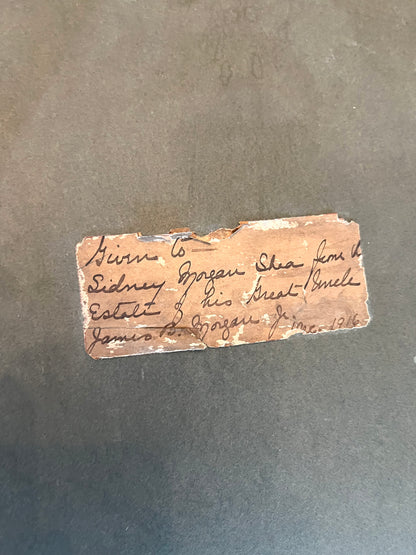 Given to
Sidney Morgan Shea from th
Estate of his Great Uncle
James B. Morgan Jr. 1916